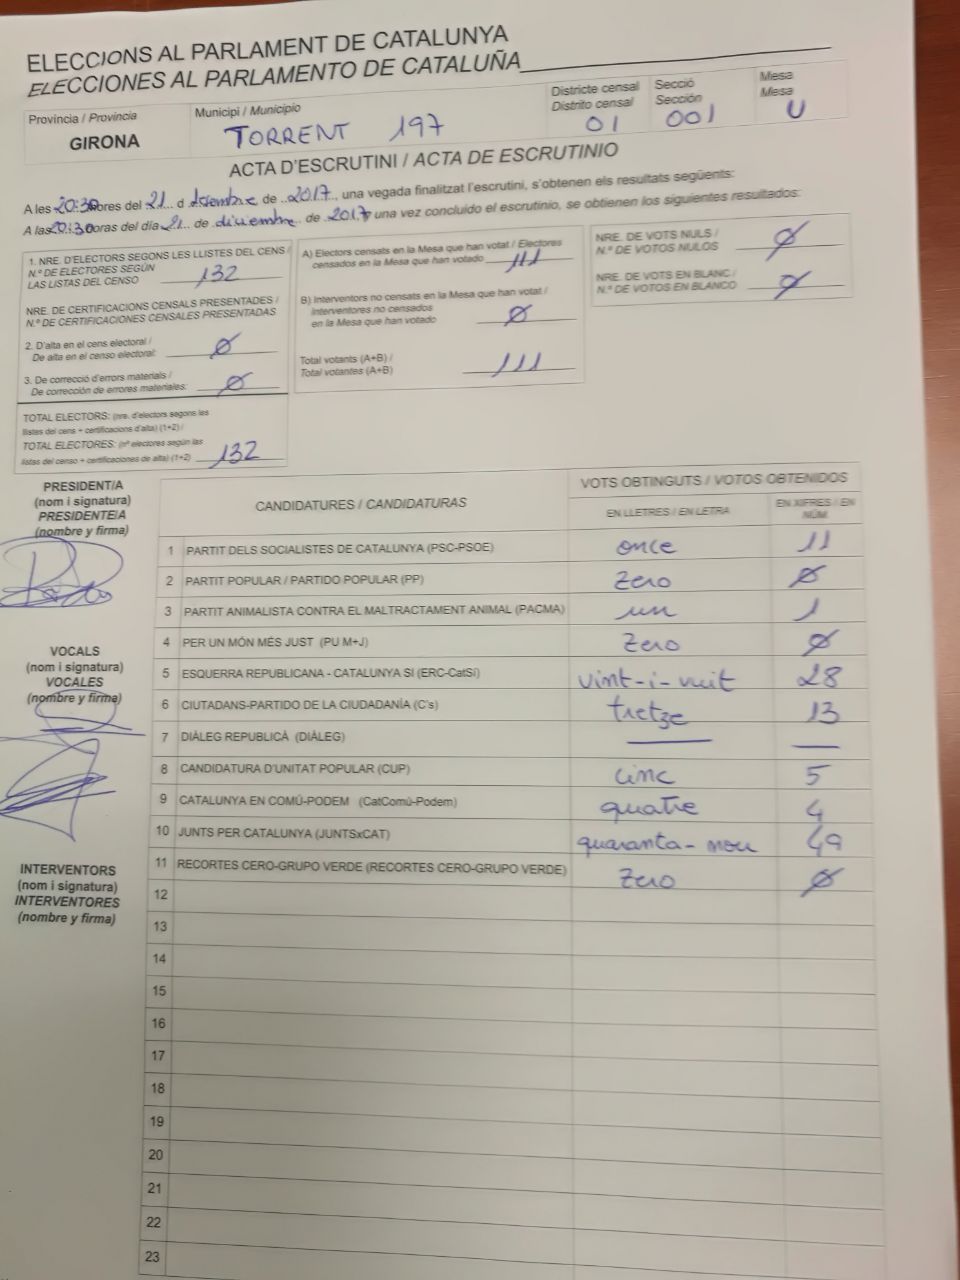 ELECCIONS AL PARLAMENT DE CATALUNYA
ELECCIONES AL PARLAMENTO DE CATALUÑA
Província / Provincia
GIRONA
Municipi / Municipio
TORRENT 197
Districte censal
Distrito censal
01
Secció
Sección
001
Mesa
Mesa
U
ACTA D'ESCRUTINI / ACTA DE ESCRUTINIO
A les 20:30 hores del 21 d desembre de 2017, una vegada finalitzat l'escrutini, s'obtenen els resultats següents:
A las 20:30 horas del día 21 de diciembre de 2017 una vez concluido el escrutinio, se obtienen los siguientes resultados:
1. NRE. D'ELECTORS SEGONS LES LLISTES DEL CENS /
N.º DE ELECTORES SEGÚN
LAS LISTAS DEL CENSO 132
NRE. DE CERTIFICACIONS CENSALS PRESENTADES /
N.º DE CERTIFICACIONES CENSALES PRESENTADAS
2. D'alta en el cens electoral /
De alta en el censo electoral: Ø
3. De correcció d'errors materials /
De corrección de errores materiales: Ø
TOTAL ELECTORS: (nre. d'electors segons les
llistes del cens + certificacions d'alta) (1+2) /
TOTAL ELECTORES: (nº electores según las
listas del censo + certificaciones de alta) (1+2) 132
A) Electors censats en la Mesa que han votat / Electores
censados en la Mesa que han votado 111
B) Interventors no censats en la Mesa que han votat /
Interventores no censados
en la Mesa que han votado Ø
Total votants (A+B) /
Total votantes (A+B) 111
NRE. DE VOTS NULS /
N.º DE VOTOS NULOS Ø
NRE. DE VOTS EN BLANC /
N.º DE VOTOS EN BLANCO Ø
PRESIDENT/A
(nom i signatura)
PRESIDENTE/A
(nombre y firma)
VOCALS
(nom i signatura)
VOCALES
(nombre y firma)
INTERVENTORS
(nom i signatura)
INTERVENTORES
(nombre y firma)
CANDIDATURES / CANDIDATURAS
VOTS OBTINGUTS / VOTOS OBTENIDOS
EN LLETRES / EN LETRA
EN XIFRES / EN
NÚM.
1 PARTIT DELS SOCIALISTES DE CATALUNYA (PSC-PSOE) once 11
2 PARTIT POPULAR / PARTIDO POPULAR (PP) Zero Ø
3 PARTIT ANIMALISTA CONTRA EL MALTRACTAMENT ANIMAL (PACMA) un 1
4 PER UN MÓN MÉS JUST (PU M+J) Zero Ø
5 ESQUERRA REPUBLICANA - CATALUNYA SI (ERC-CatSí) vint-i-vuit 28
6 CIUTADANS-PARTIDO DE LA CIUDADANÍA (C's) tretze 13
7 DIÀLEG REPUBLICÀ (DIÀLEG) — —
8 CANDIDATURA D'UNITAT POPULAR (CUP) cinc 5
9 CATALUNYA EN COMÚ-PODEM (CatComú-Podem) quatre 4
10 JUNTS PER CATALUNYA (JUNTSxCAT) quaranta-nou 49
11 RECORTES CERO-GRUPO VERDE (RECORTES CERO-GRUPO VERDE) Zero Ø
12
13
14
15
16
17
18
19
20
21
22
23